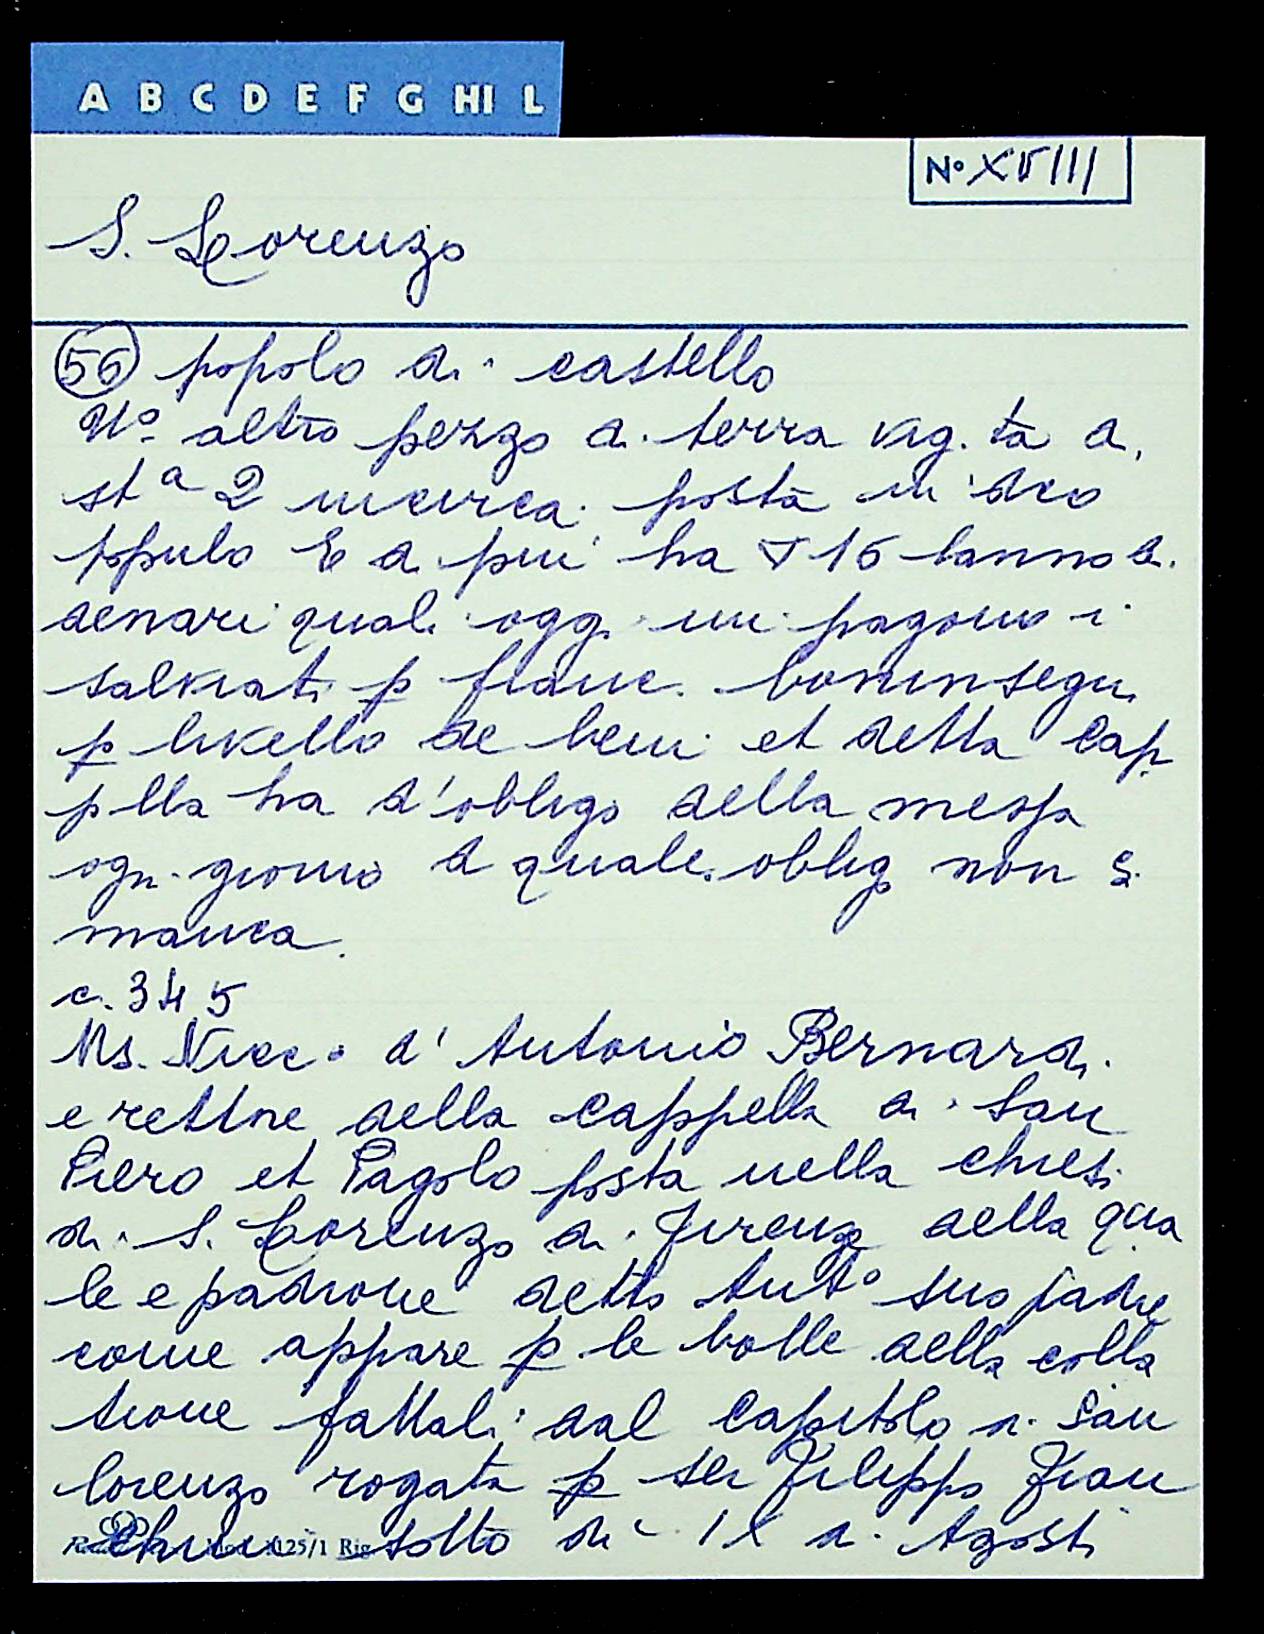 A B C D E F G HI L
N° XVIII
S. Lorenzo
56 popolo di castello
N° altro pezzo di terra vig. ta di
st a 2 incirca posta in dco
popolo E di piu ha 16 lanno di
denari quali oggi un pagono i
salviati p franc. boninsegni
p livello de beni et detta Cap
plla ha d'obligo della messa
ogni giorno d quale obligo non si
manca.
c. 345
Ms. Nicc° d'Antonio Bernardi
e rettore della cappella di San
Piero et Pagolo posta nella chiesi
di S. Lorenzo di Firenze della qua
le e padrone detto Ant° suo padre
come appare p le bolle della colla
tione fattali dal Capitolo di San
lorenzo rogata p ser Filippo Fran
chini sotto di IX di Agosti
125/1 Rig